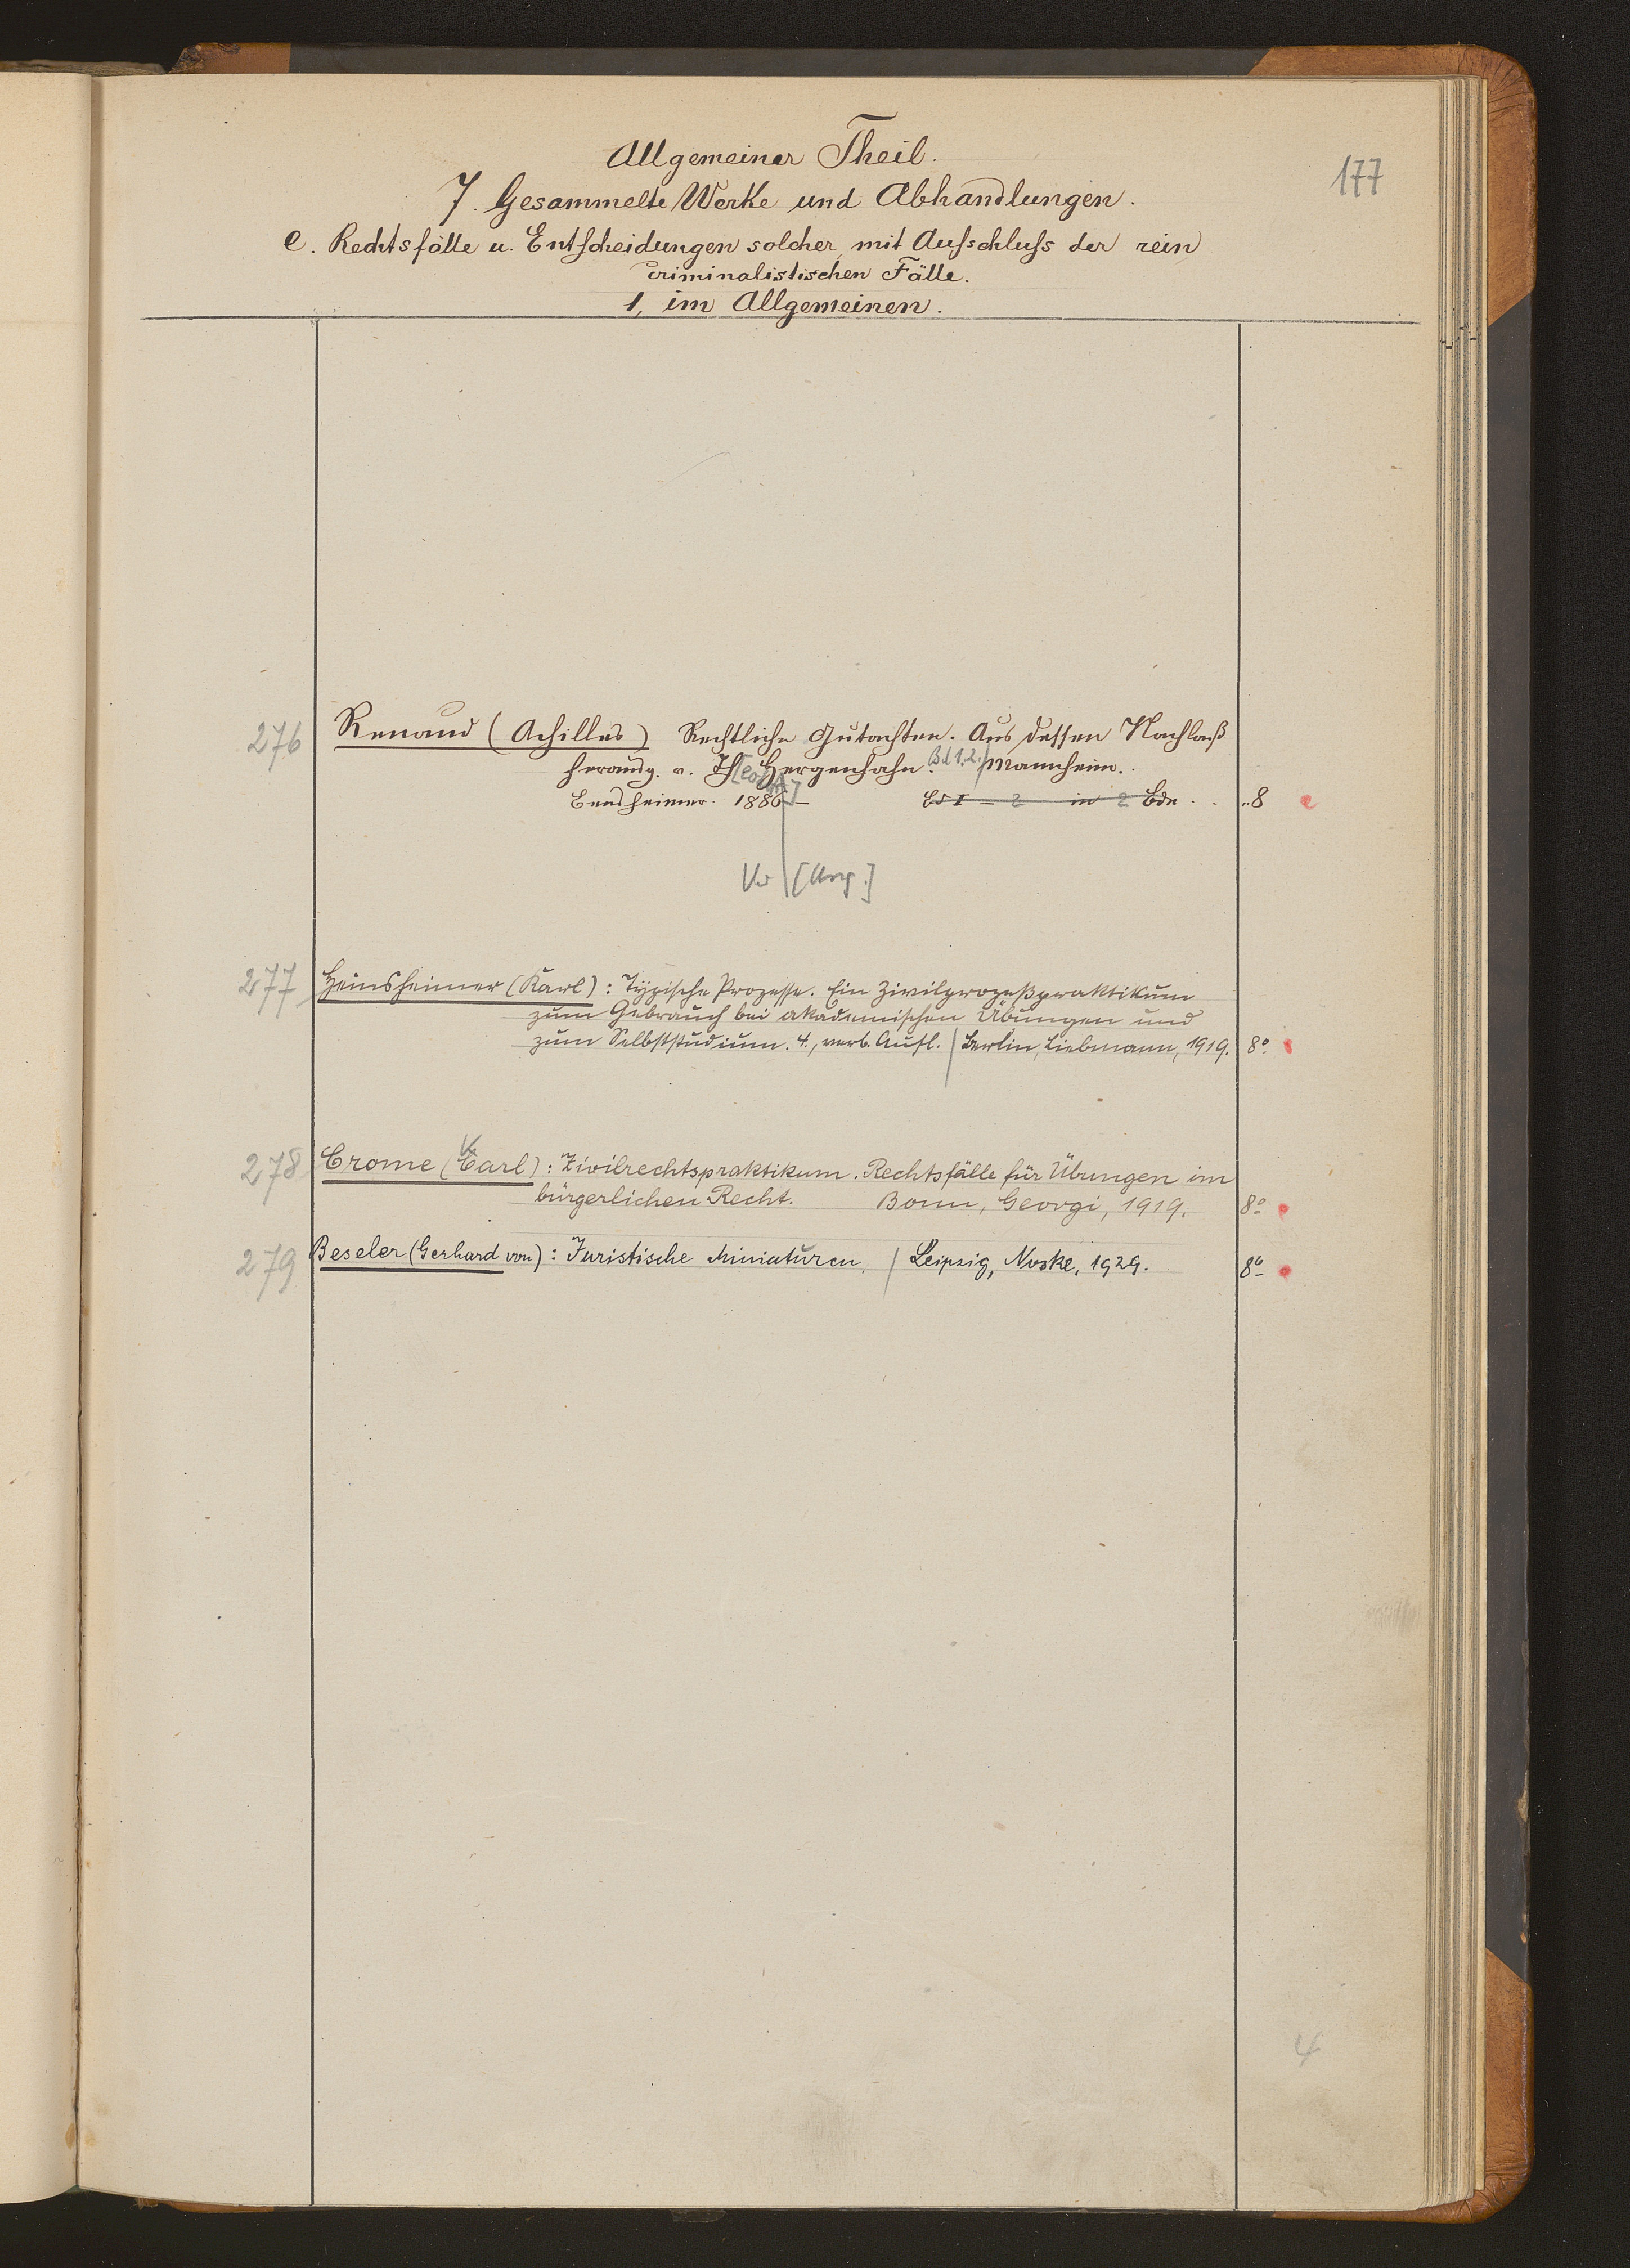 Allgemeiner Theil.
177
7. Gesammelte Werke und Abhandlungen.
e. Rechtsfälle u. Entscheidungen solcher, mit Ausschluss der rein
criminalistischen Fälle.
1, im Allgemeinen.
276 Renaud (Achilles) Rechtliche Gutachten. Aus dessen Nachlaß
herausg. v. Th[eod] Hergenhahn. Bd 1.2. / Mannheim.
Bensheimer. 1886 – Bd I – 2 in 2 Bde. 8
[Ang.]
277 Heinsheimer (Karl): Typische Prozesse. Ein Zivilprozeßpraktikum
zum Gebrauch bei akademischen Übungen und
zum Selbststudium. 4., verb. Aufl. / Berlin, Liebmann, 1919. 8°
278 Crome (Carl): Zivilrechtspraktikum. Rechtsfälle für Übungen im
K
bürgerlichen Recht. Bonn, Georgi, 1919. 8°
279 Beseler (Gerhard von): Juristische Miniaturen. / Leipzig, Noske, 1929. 8°
4